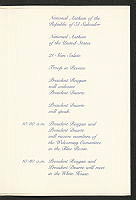 National Anthem of the
Republic of El Salvador
National Anthem
of the United States
21-Gun Salute
Troop in Review
President Reagan
will welcome
President Duarte
President Duarte
will speak
10:20 a.m. President Reagan and
President Duarte
will receive members of
the Welcoming Committee
in the Blue Room.
10:40 a.m. President Reagan and
President Duarte will meet
in the White House.